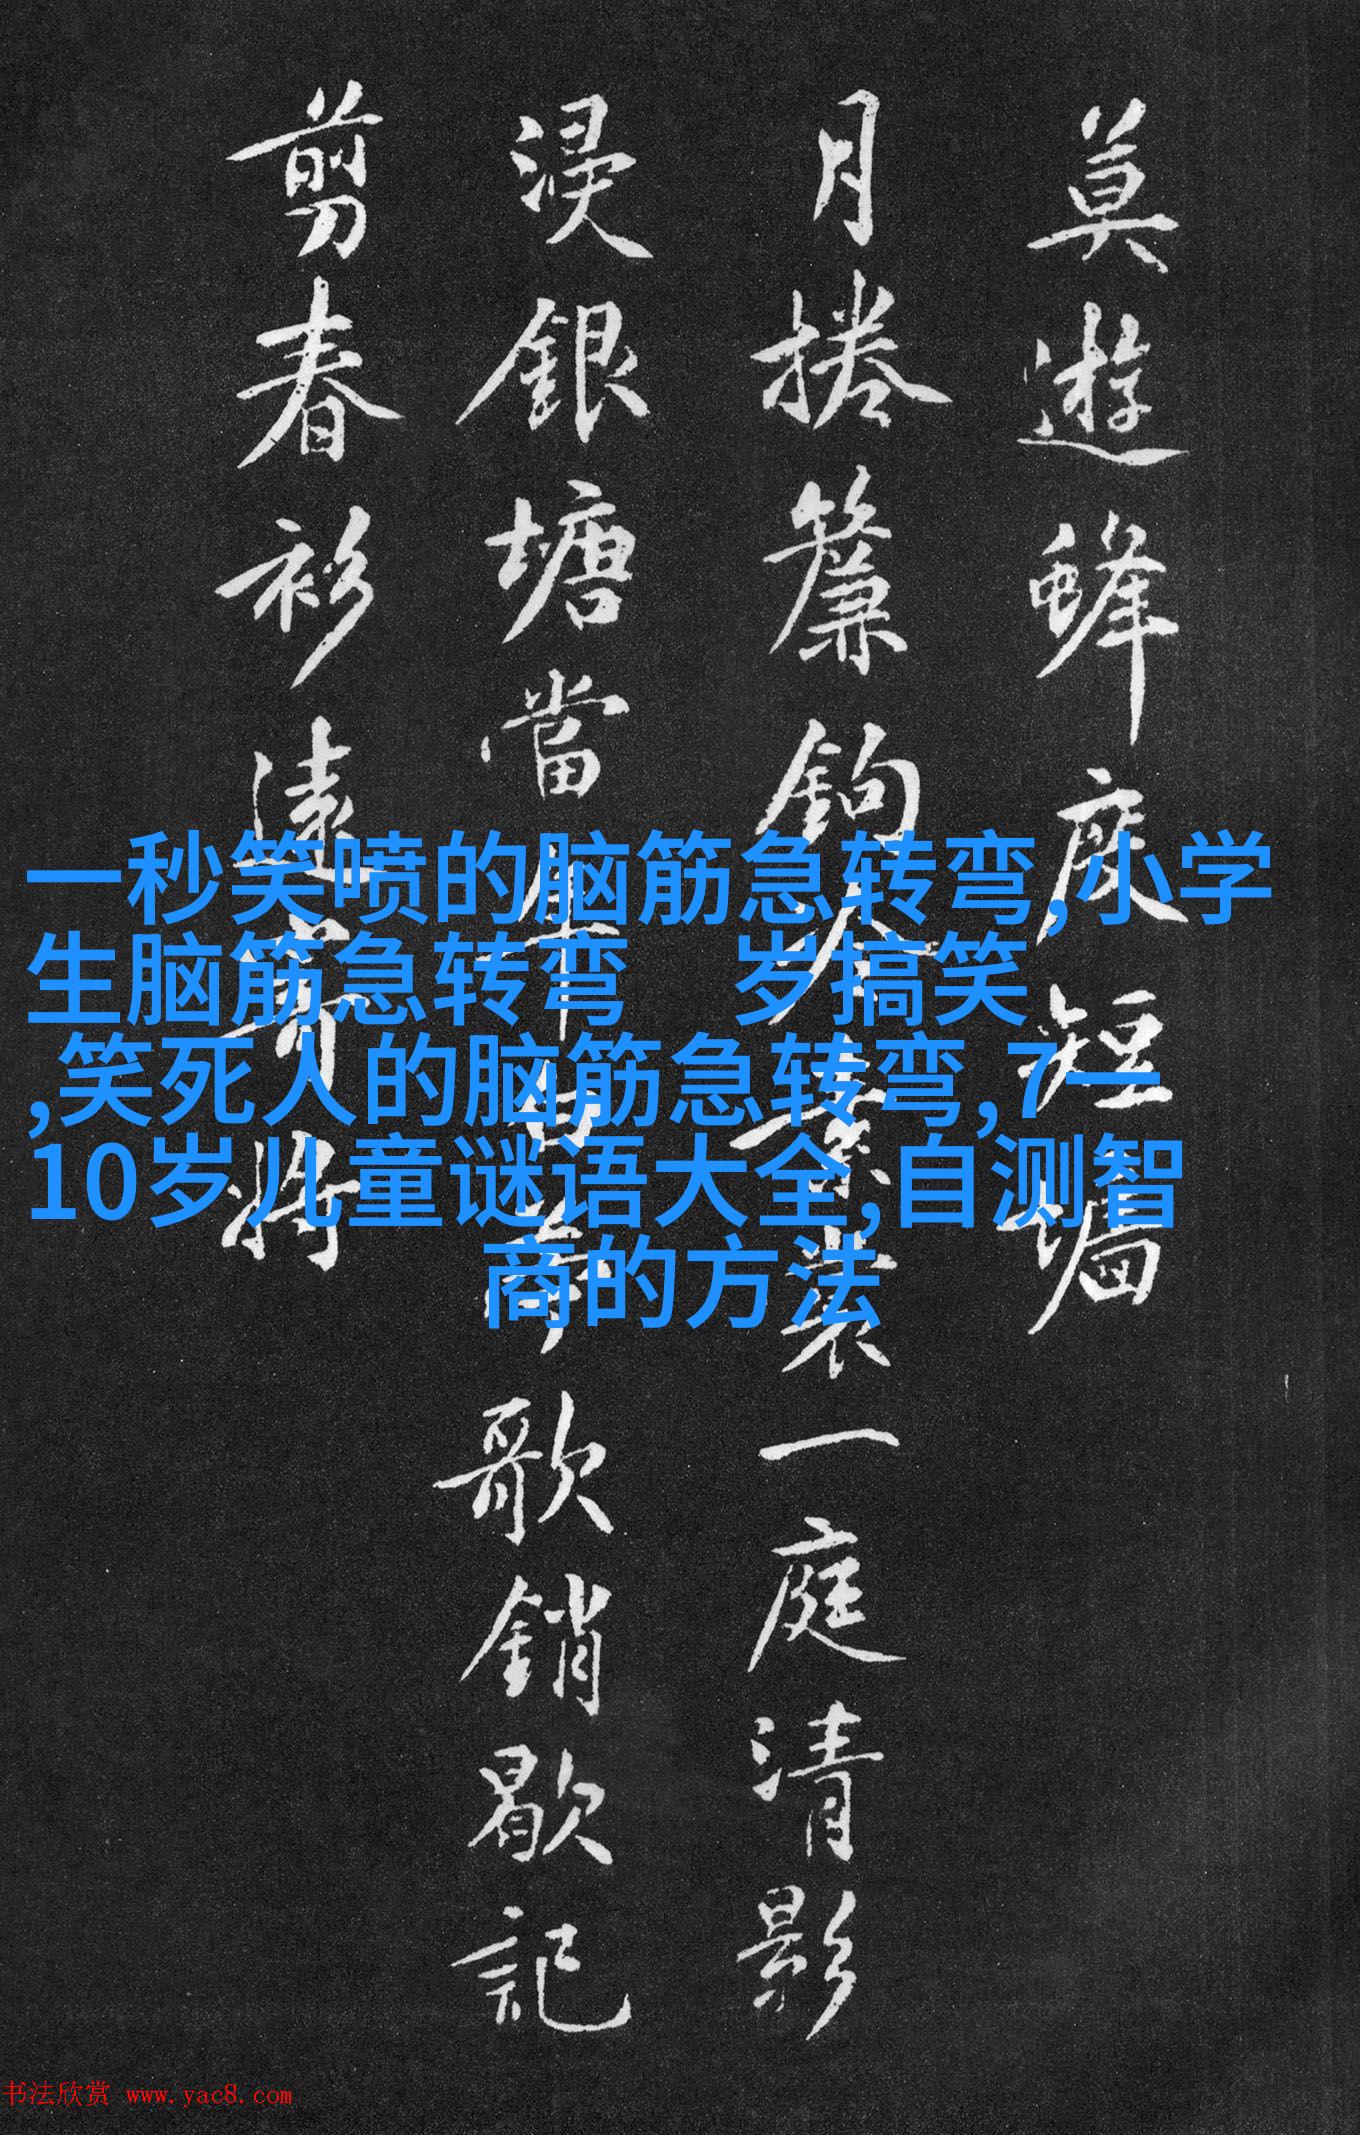 莫遊蜂度短墻
月捲簾鉤人素裳一庭清影
浸銀塘當年白苧歌銷歇記
剪春衫遠寄將
一秒笑喷的脑筋急转弯,小学
生脑筋急转弯 岁搞笑
,笑死人的脑筋急转弯,7一
10岁儿童谜语大全,自测智
商的方法
书法欣赏 www.yac8.com